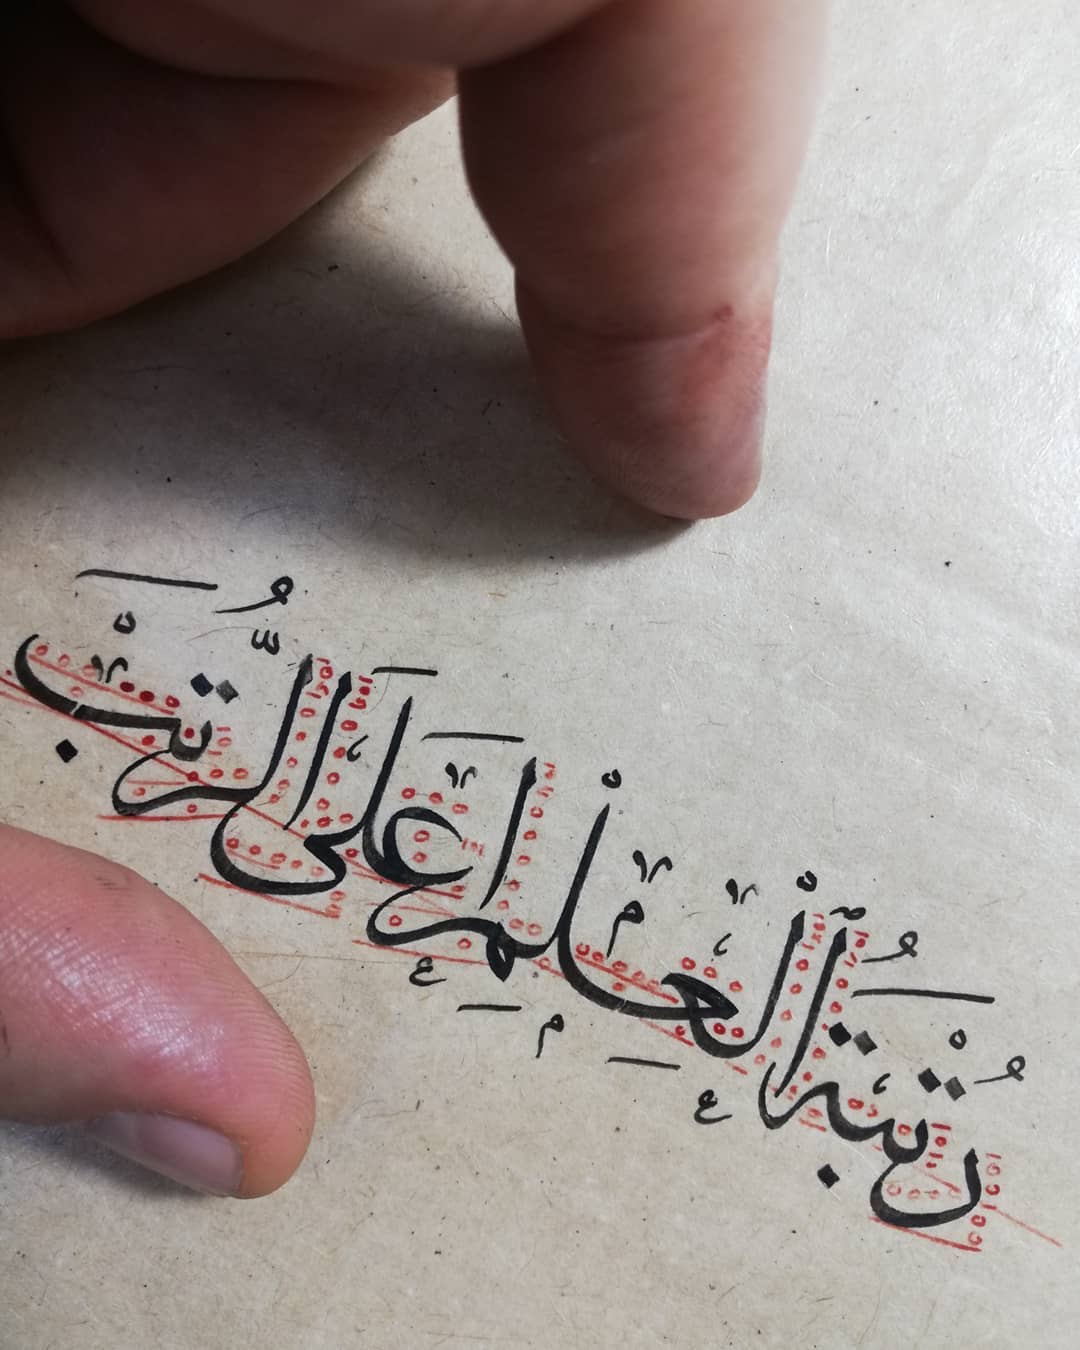 رُتْبَةُ ٱلْعِلْمِ أَعْلَى الرُّتَبْ